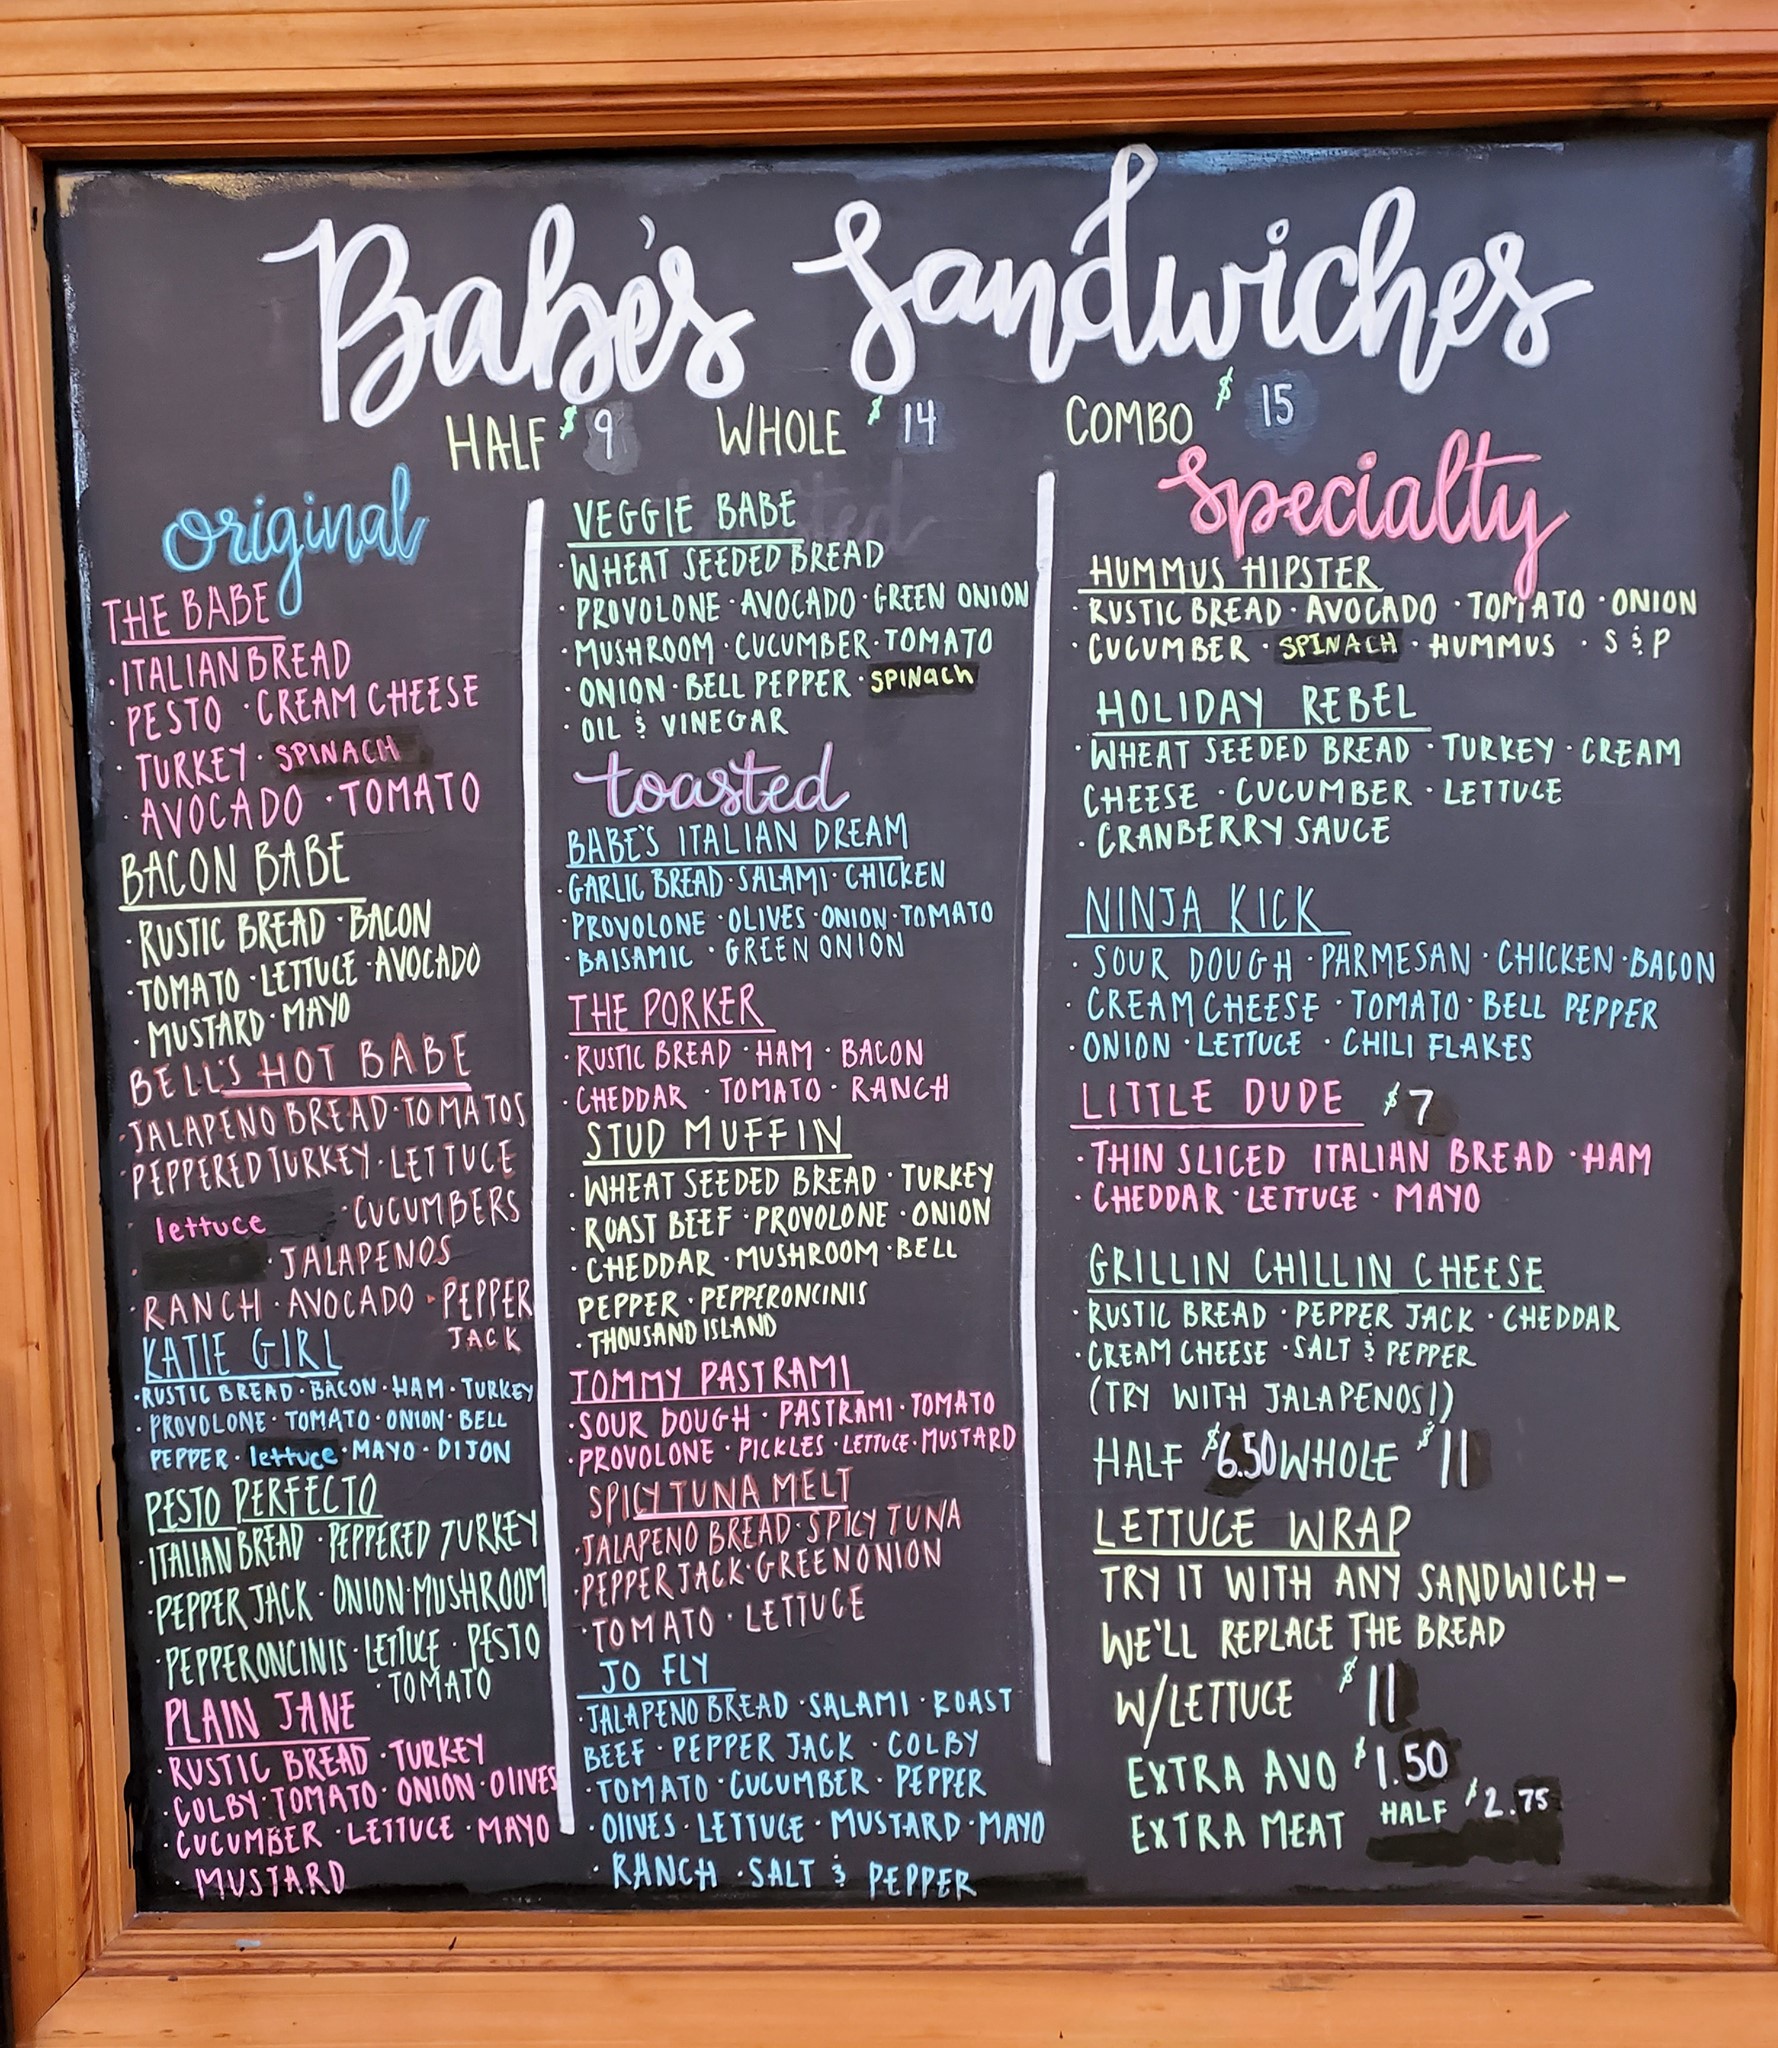 Babe's Sandwiches
HALF $9 WHOLE $14 COMBO $15
original
THE BABE
· ITALIAN BREAD
· PESTO · CREAM CHEESE
· TURKEY · SPINACH
· AVOCADO · TOMATO
BACON BABE
· RUSTIC BREAD · BACON
· TOMATO · LETTUCE · AVOCADO
· MUSTARD · MAYO
BELL'S HOT BABE
· JALAPENO BREAD · TOMATOS
· PEPPERED TURKEY · LETTUCE
lettuce · CUCUMBERS
· JALAPENOS
· RANCH · AVOCADO · PEPPER
JACK
KATIE GIRL
· RUSTIC BREAD · BACON · HAM · TURKEY
· PROVOLONE · TOMATO · ONION · BELL
PEPPER · lettuce · MAYO · DIJON
PESTO PERFECTO
· ITALIAN BREAD · PEPPERED TURKEY
· PEPPER JACK · ONION · MUSHROOM
· PEPPERONCINIS · LETTUCE · PESTO
· TOMATO
PLAIN JANE
· RUSTIC BREAD · TURKEY
· COLBY · TOMATO · ONION · OLIVES
· CUCUMBER · LETTUCE · MAYO
· MUSTARD
VEGGIE BABE
· WHEAT SEEDED BREAD
· PROVOLONE · AVOCADO · GREEN ONION
· MUSHROOM · CUCUMBER · TOMATO
· ONION · BELL PEPPER · SPINACH
· OIL & VINEGAR
toasted
BABE'S ITALIAN DREAM
· GARLIC BREAD · SALAMI · CHICKEN
· PROVOLONE · OLIVES · ONION · TOMATO
· BALSAMIC · GREEN ONION
THE PORKER
· RUSTIC BREAD · HAM · BACON
· CHEDDAR · TOMATO · RANCH
STUD MUFFIN
· WHEAT SEEDED BREAD · TURKEY
· ROAST BEEF · PROVOLONE · ONION
· CHEDDAR · MUSHROOM · BELL
PEPPER · PEPPERONCINIS
· THOUSAND ISLAND
TOMMY PASTRAMI
· SOUR DOUGH · PASTRAMI · TOMATO
· PROVOLONE · PICKLES · LETTUCE · MUSTARD
SPICY TUNA MELT
· JALAPENO BREAD · SPICY TUNA
· PEPPER JACK · GREEN ONION
· TOMATO · LETTUCE
JO FLY
· JALAPENO BREAD · SALAMI · ROAST
BEEF · PEPPER JACK · COLBY
· TOMATO · CUCUMBER · PEPPER
· OLIVES · LETTUCE · MUSTARD · MAYO
· RANCH · SALT & PEPPER
specialty
HUMMUS HIPSTER
· RUSTIC BREAD · AVOCADO · TOMATO · ONION
· CUCUMBER · SPINACH · HUMMUS · S & P
HOLIDAY REBEL
· WHEAT SEEDED BREAD · TURKEY · CREAM
CHEESE · CUCUMBER · LETTUCE
· CRANBERRY SAUCE
NINJA KICK
· SOUR DOUGH · PARMESAN · CHICKEN · BACON
· CREAM CHEESE · TOMATO · BELL PEPPER
· ONION · LETTUCE · CHILI FLAKES
LITTLE DUDE $7
· THIN SLICED ITALIAN BREAD · HAM
· CHEDDAR · LETTUCE · MAYO
GRILLIN CHILLIN CHEESE
· RUSTIC BREAD · PEPPER JACK · CHEDDAR
· CREAM CHEESE · SALT & PEPPER
(TRY WITH JALAPENOS!)
HALF $6.50 WHOLE $11
LETTUCE WRAP
TRY IT WITH ANY SANDWICH-
WE'LL REPLACE THE BREAD
W/LETTUCE $11
EXTRA AVO $1.50
EXTRA MEAT HALF $2.75